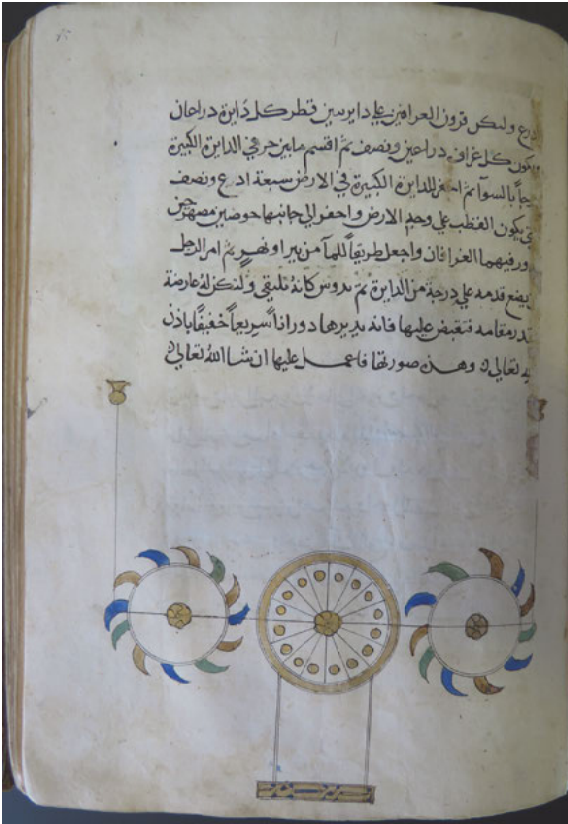 وليكن قرون الغرافين علي دايرتين قطر كل دايرة دراعان
كل غراف دراعين ونصف ثم اقسم ما بين حرفي الدايرة الكبيرة
بالسوآ ثم احفر للدايرة الكبيرة في الارض سبعة ادرع ونصف
يكون القطب علي وجه الارض واحفر الي جانبها حوضين مصهرجين
الغرافان واجعل طريقاً للمآ من بير او نهر ثم امر الرجل
يضع قدمه علي درجة من الدايرة ثم يدوس كانه ولتكن له عارضة
مقامه فتقبض عليها فانه يديرها دوراناً سريعاً خفيفاً باذن
تعالي وهذه صورتها فاعمل عليها ان شا الله تعالي